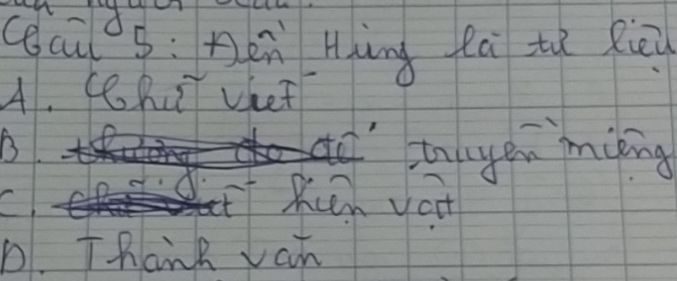 Câu 5: Đền Hùng là tư liệu
A. Chữ viết
B. truyền miệng
C. hiện vật
D. Thành văn